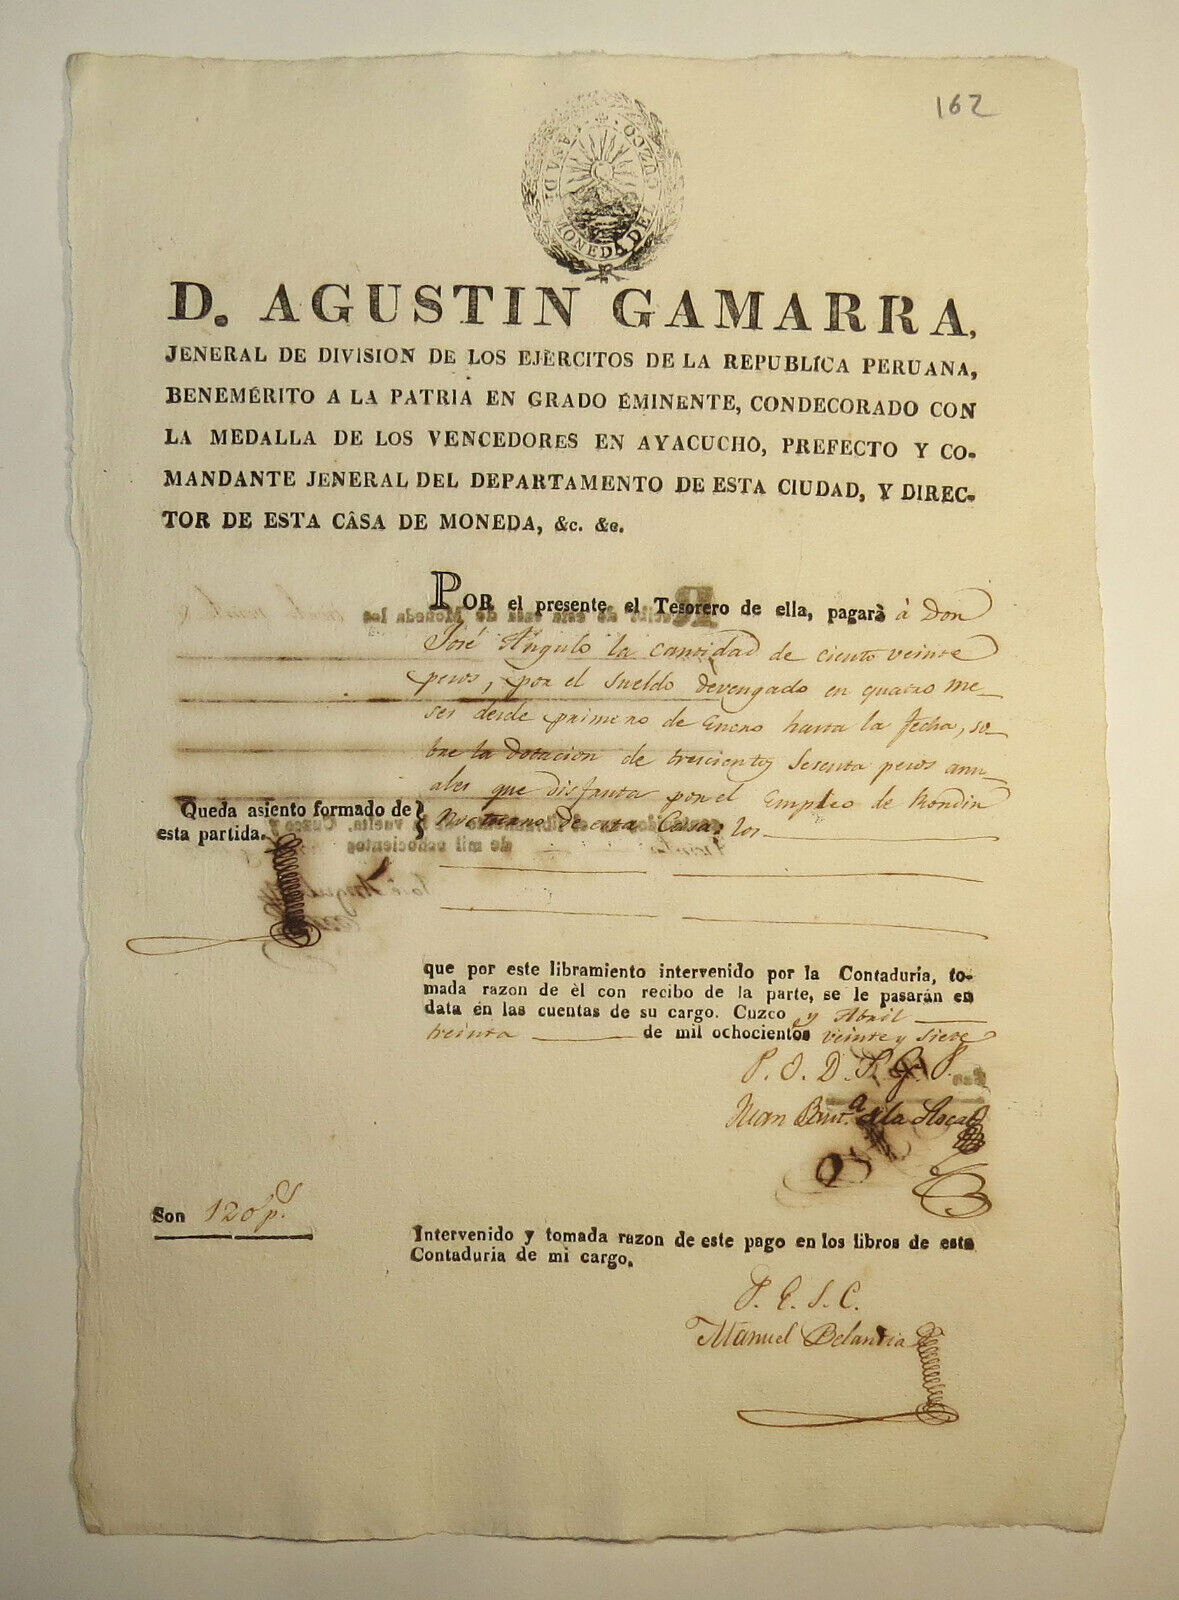 162
CASA DE MONEDA DEL CUZCO
D. AGUSTIN GAMARRA,
JENERAL DE DIVISION DE LOS EJÈRCITOS DE LA REPUBLÍCA PERUANA,
BENEMÉRITO A LA PATRIA EN GRADO EMINENTE, CONDECORADO CON
LA MEDALLA DE LOS VENCEDORES EN AYACUCHO, PREFECTO Y CO-
MANDANTE JENERAL DEL DEPARTAMENTO DE ESTA CIUDAD, Y DIREC-
TOR DE ESTA CÂSA DE MONEDA, &c. &c.
POR el presente el Tesorero de ella, pagarà â Don
José Angulo la cantidad de ciento veinte
pesos, por el sueldo devengado en quatro me-
ses desde primero de Enero hasta la fecha, so-
bre la dotacion de trescientos sesenta pesos anu-
ales que disfruta por el Empleo de Rondin
Nocturno de esta Casa; los
Queda asiento formado de
esta partida.
que por este libramiento intervenido por la Contaduría, to-
mada razon de èl con recibo de la parte, se le pasarán en
data en las cuentas de su cargo. Cuzco y Abril
treinta de mil ochocientos veinte y siete
P. O. D. S. G. P.
Juan Baut.a de la Roca
Son 120 p.s
Intervenido y tomada razon de este pago en los libros de esta
Contaduria de mi cargo.
P. E. S. C.
Manuel Belandia